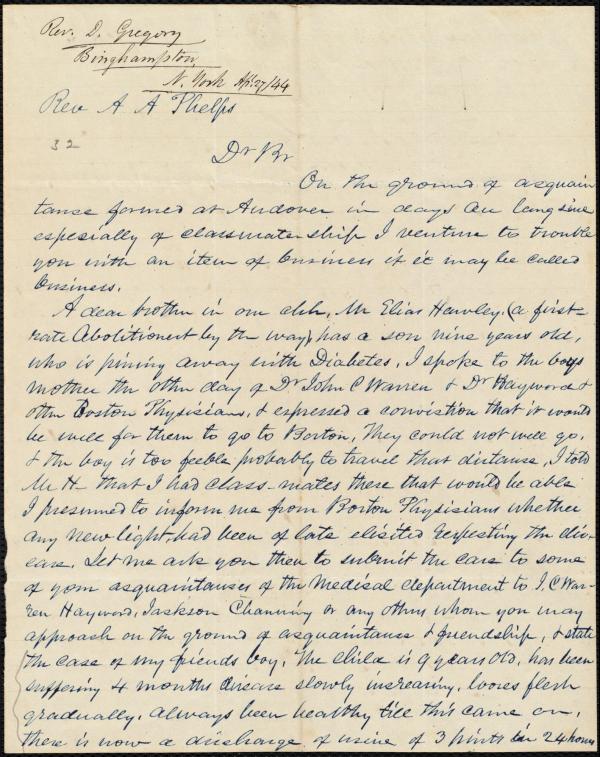 Rev. D. Gregory
Binghampton,
N. York Apl. 27/44
Rev A A Phelps
32
Dr Br
On the ground of acquain
tance formed at Andover in days au lang sine
especially of classmate ship I venture to trouble
you with an item of business if it may be called
business.
A dear brother in our chh, Mr Elias Hawley, (a first-
rate Abolitionist by the way) has a son nine years old,
who is pining away with Diabetes. I spoke to the boys
mother the other day of Dr John C Warren & Dr Hayword &
other Boston Physicians, & expressed a conviction that it would
be well for them to go to Boston. They could not well go,
& the boy is too feeble probably to travel that distance, I told
Mr H— that I had class-mates there that would be able
I presumed to inform me from Boston Physicians whether
any new light had been of late elicited respecting the dis-
ease. Let me ask you then to submit the case to some
of your acquaintances of the Medical department to J. C War-
ren Hayword, Jackson Channing or any others whom you may
approach on the ground of acquaintance & friendship, & state
the case of my friends boy. The child is 9 years old, has been
suffering 4 months disease slowly increasing, looses flesh
gradually, always been healthy till this came on,
there is now a discharge of urine of 3 pints in 24 hours